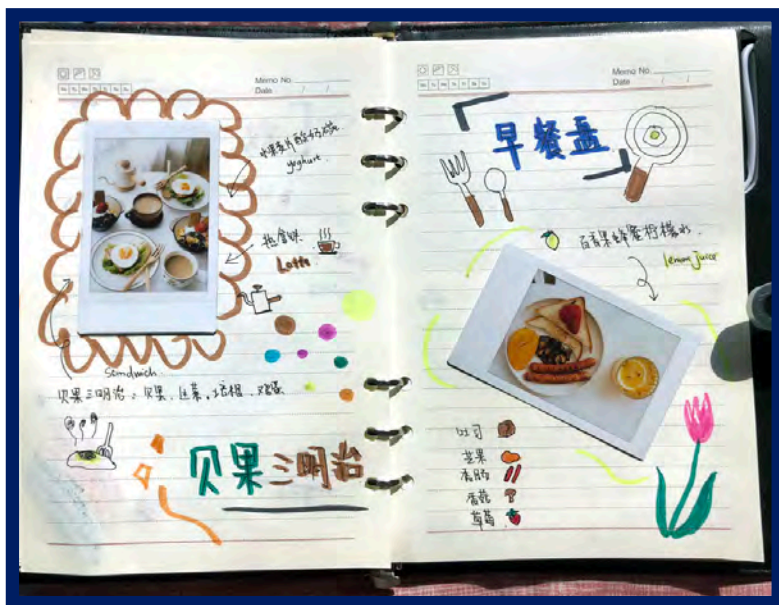 Memo No.
Date / /
水果麦片酸奶碗.
yoghurt.
热拿铁
Latte
Sandwich.
贝果三明治：贝果、生菜、培根、鸡蛋
贝果三明治
Memo No.
Date / /
早餐盘
百香果蜂蜜柠檬水.
lemon juice
吐司
芒果
香肠
香菇
草莓